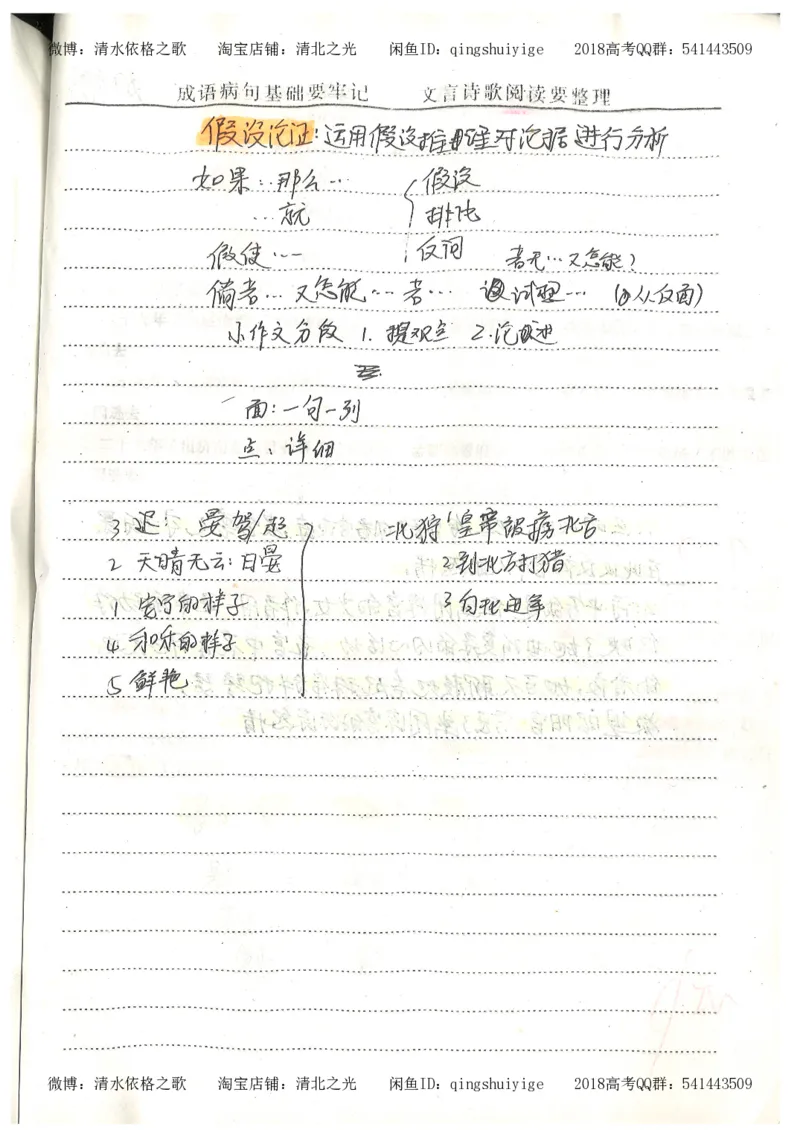 微博：清水依格之歌 淘宝店铺：清北之光 闲鱼ID：qingshuiyige 2018高考QQ群：541443509
成语病句基础要牢记 文言诗歌阅读要整理
假设论证：运用假设推理对论据进行分析
如果… 那么… 假设
…就 排比
假使… 反问 若无…又怎能？
倘若…又怎能…若… 试想… (从反面)
小作文分段 1. 提观点 2. 论述
面：一句一列
点：详细
3 迟：晏驾/起 北狩 1 皇帝被掳北方
2 天晴无云：日晏 2 到北方打猎
1 安宁的样子 3 向北进军
4 和乐的样子
5 鲜艳
微博：清水依格之歌 淘宝店铺：清北之光 闲鱼ID：qingshuiyige 2018高考QQ群：541443509